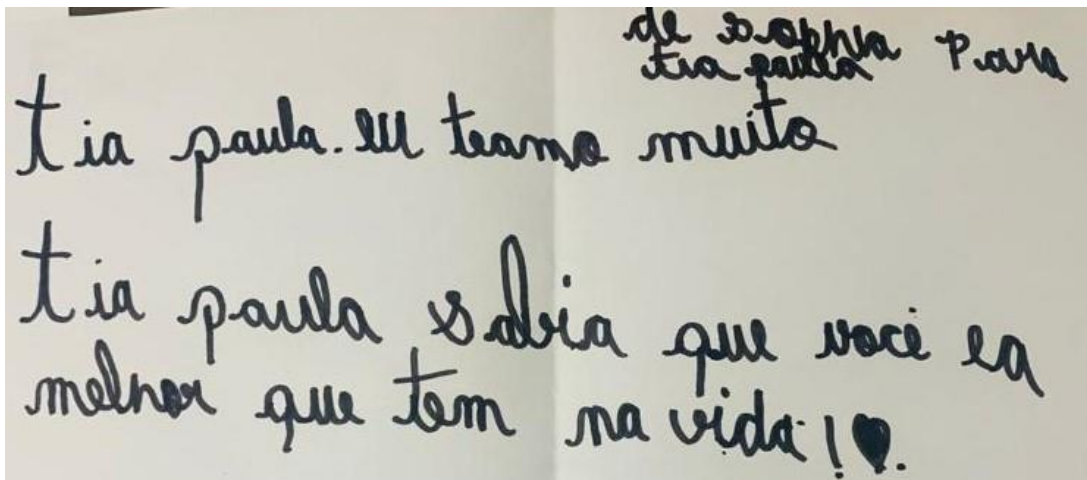 de sophia Para
tia paula
tia paula. eu teamo muito
tia paula sabia que você ea
melhor que tem na vida!♥.